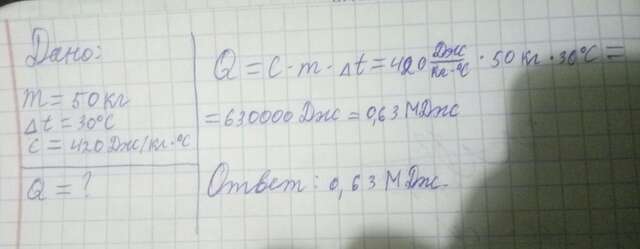 Дано:
m = 50 кг
Δt = 30°C
c = 420 Дж/кг·°C
Q = ?
Q = c · m · Δt = 420 Дж/кг·°C · 50 кг · 30°C =
= 630000 Дж = 0,63 МДж
Ответ: 0,63 МДж.